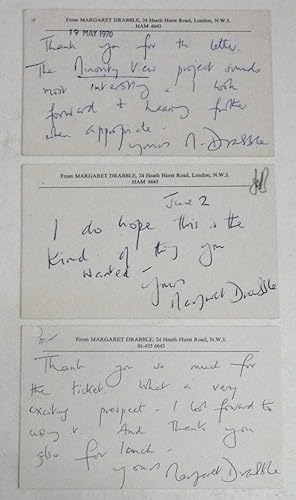 From MARGARET DRABBLE, 24 Heath Hurst Road, London, N.W.3.
HAM 6643
19 MAY 1970
Thank you for the letter.
The Minority View project sounds
most interesting & I look
forward to hearing further
when appropriate -
yours M. Drabble
From MARGARET DRABBLE, 24 Heath Hurst Road, London, N.W.3.
HAM 6643
June 2
I do hope this is the
kind of thing you
wanted -
yours
Margaret Drabble
From MARGARET DRABBLE, 24 Heath Hurst Road, N.W.3.
01-435 6643
Thank you so much for
the ticket. What a very
exciting prospect - I look forward to
using it. And thank you
also for lunch -
yours Margaret Drabble